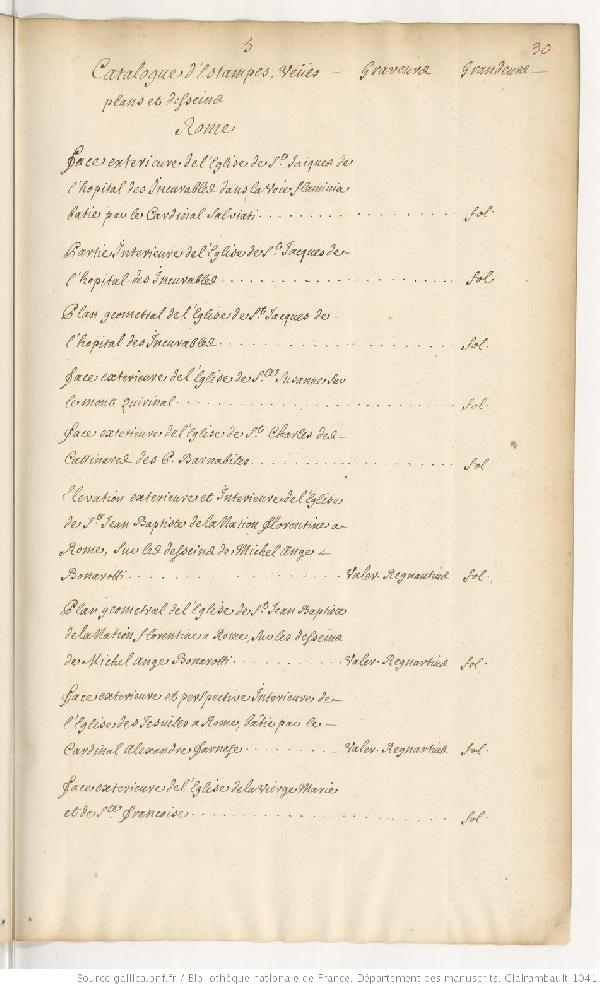 5
30
Catalogue d'Estampes, Veües — Graveurs Grandeurs —
plans et desseins
Rome
Face exterieure de l'Eglise de St. Jacques de
l'hopital des Incurables dans la Voie flaminia
batie par le Cardinal Salviati . . . . fol.
Partie Interieure de l'Eglise de St. Jacques de
l'hopital des Incurables . . . . fol.
Plan geometral de l'Eglise de St. Jacques de
l'hopital des Incurables . . . . fol.
face exterieure de l'Eglise de Ste. Susanne sur
le mont Quirinal . . . . fol.
face exterieure de l'Eglise de St. Charles des
Cattinares des P. Barnabites . . . . fol
Elevation exterieure et Interieure de l'Eglise
de St. Jean Baptiste de la Nation florentine a
Rome, sur les desseins de Michel Ange
Bonarotti . . . . Valer. Regnartius fol.
Plan geometral de l'Eglise de St. Jean Baptiste
de la Nation florentine a Rome, sur les desseins
de Michel Ange Bonarotti . . . . Valer. Regnartius fol.
face exterieure et perspective Interieure de
l'Eglise des Jesuites a Rome, bâtie par le
Cardinal Alexandre farnese . . . . Valer. Regnartius fol.
face exterieure de l'Eglise de la Vierge Marie
et de Ste. francoise . . . . fol.
Source gallica.bnf.fr / Bibliothèque nationale de France. Département des manuscrits. Clairambault 1041